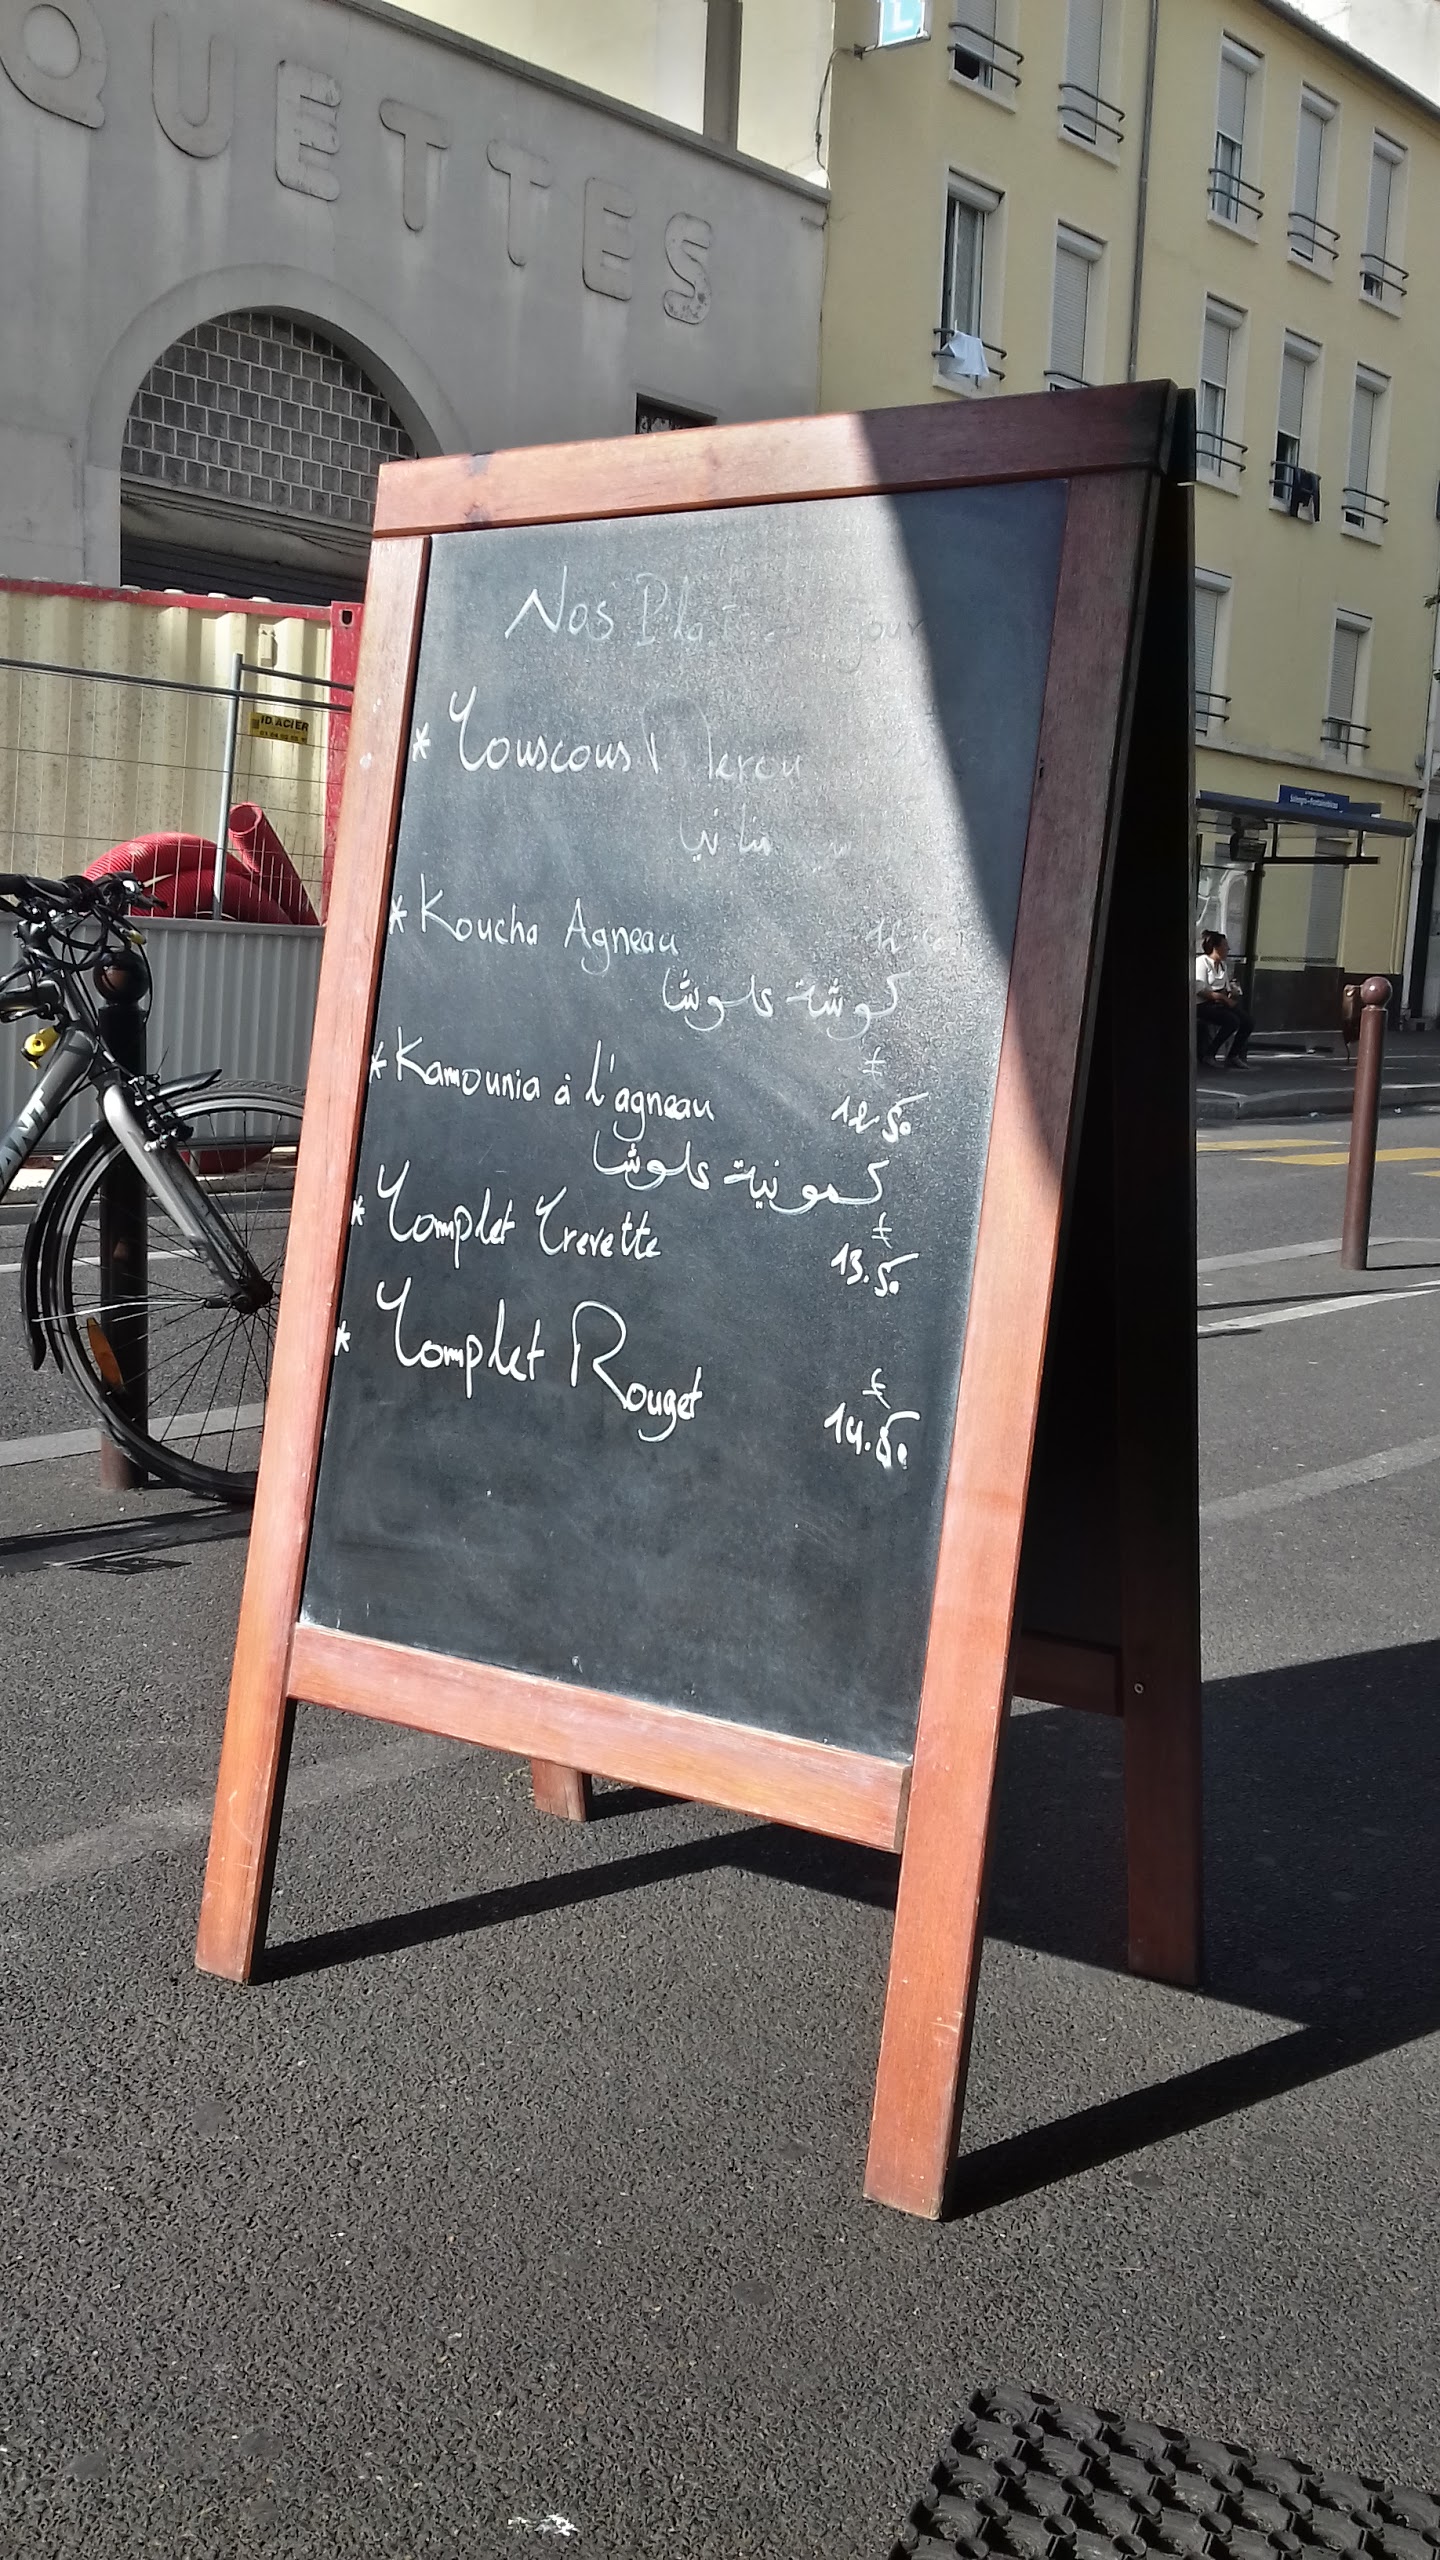 QUETTES
ID ACIER
Nos Plat jour
* Couscous Merou
* Koucha Agneau
كوشة علوشا
* Kamounia à l'agneau
€
12.50
كمونية علوشا
* Complet Crevette
€
13.50
* Complet Rouget
€
14.50